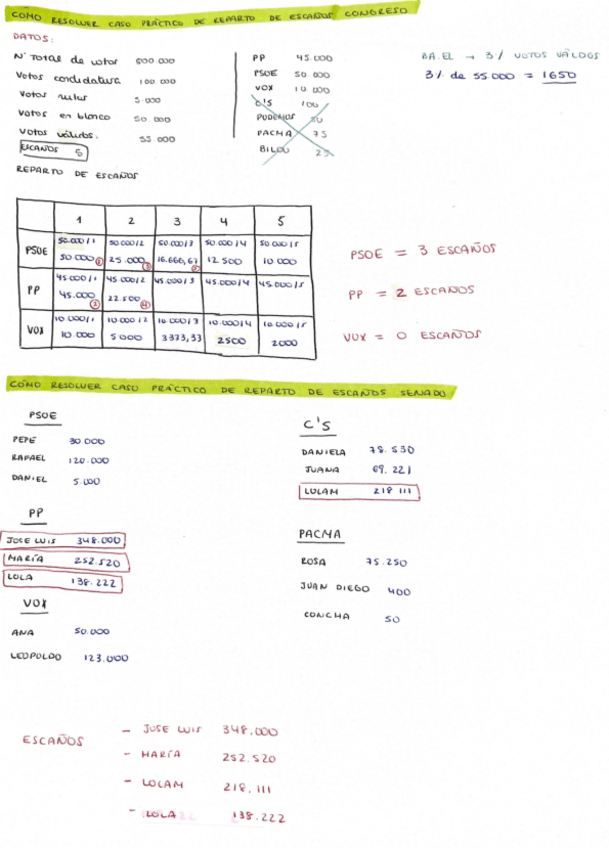 COMO RESOLVER CASO PRÁCTICO DE REPARTO DE ESCAÑOS CONGRESO
DATOS:
Nº Total de votos 500.000
Votos candidatura 100.000
Votos nulos 5.000
Votos en blanco 50.000
Votos válidos: 55 000
ESCAÑOS 5
PP 45.000
PSOE 50.000
VOX 10 000
C'S 100
PODEMOS 50
PACMA 75
BILDU 25
BA.EL → 3% VOTOS VÁLIDOS
3% de 55000 = 1650
REPARTO DE ESCAÑOS
1 2 3 4 5
50.000/1 50000/2 50.000/3 50.000/4 50.000/5
PSOE 50.000 ① 25.000 ③ 16.666,67 12500 10000
45000/1 45.000/2 45.000/3 45.000/4 45.000/5
PP 45.000 ② 22.500 ④
10.000/1 10.000/2 10.000/3 10.000/4 10.000/5
VOX 10.000 5000 3333,33 2500 2000
PSOE = 3 ESCAÑOS
PP = 2 ESCAÑOS
VOX = 0 ESCAÑOS
CÓMO RESOLVER CASO PRÁCTICO DE REPARTO DE ESCAÑOS SENADO
PSOE
PEPE 30000
RAFAEL 120.000
DANIEL 5.000
PP
JOSE LUIS 348.000
MARÍA 252.520
LOLA 138.222
VOX
ANA 50.000
LEOPOLDO 123.000
C'S
DANIELA 78.530
JUANA 69.221
LOLAM 218 111
PACMA
ROSA 75.250
JUAN DIEGO 400
CONCHA 50
ESCAÑOS
- JOSE LUIS 348.000
- MARÍA 252.520
- LOLAM 218.111
- LOLA 138.222